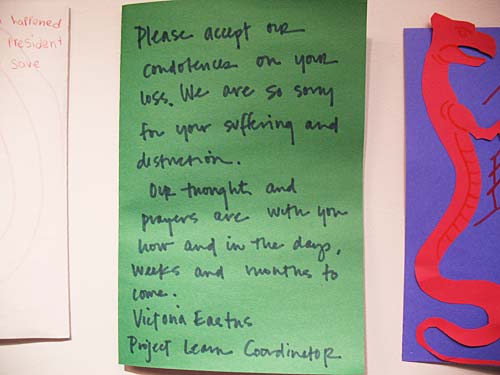 happened
President
save
Please accept our
condolences on your
loss. We are so sorry
for your suffering and
distruction.
Our thoughts and
prayers are with you
now and in the days,
weeks and months to
come.
Victoria Eastus
Project Learn Coordinator